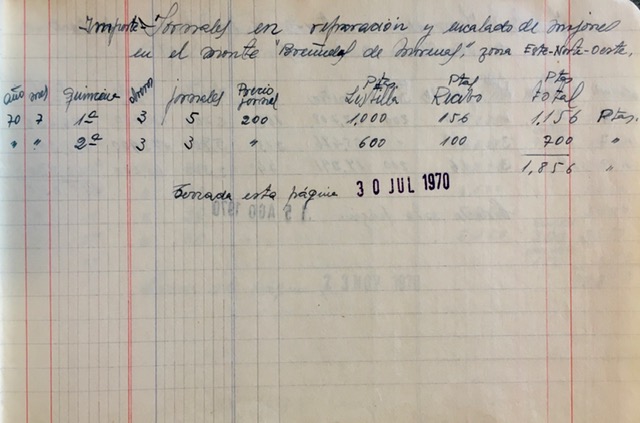 Importe = Jornales en reparación y encalado de mojones
en el monte "Breñades de Morenas", zona Este-Norte-Oeste.
Ptas Ptas Ptas
año mes Quincena obreros jornales Precio jornal Listilla Recibo total
70 7 1ª 3 5 200 1,000 156 1,156 Ptas.
" " 2ª 3 3 " 600 100 700 "
1,856 "
Cerrada esta página 30 JUL 1970
5 AGO 1970